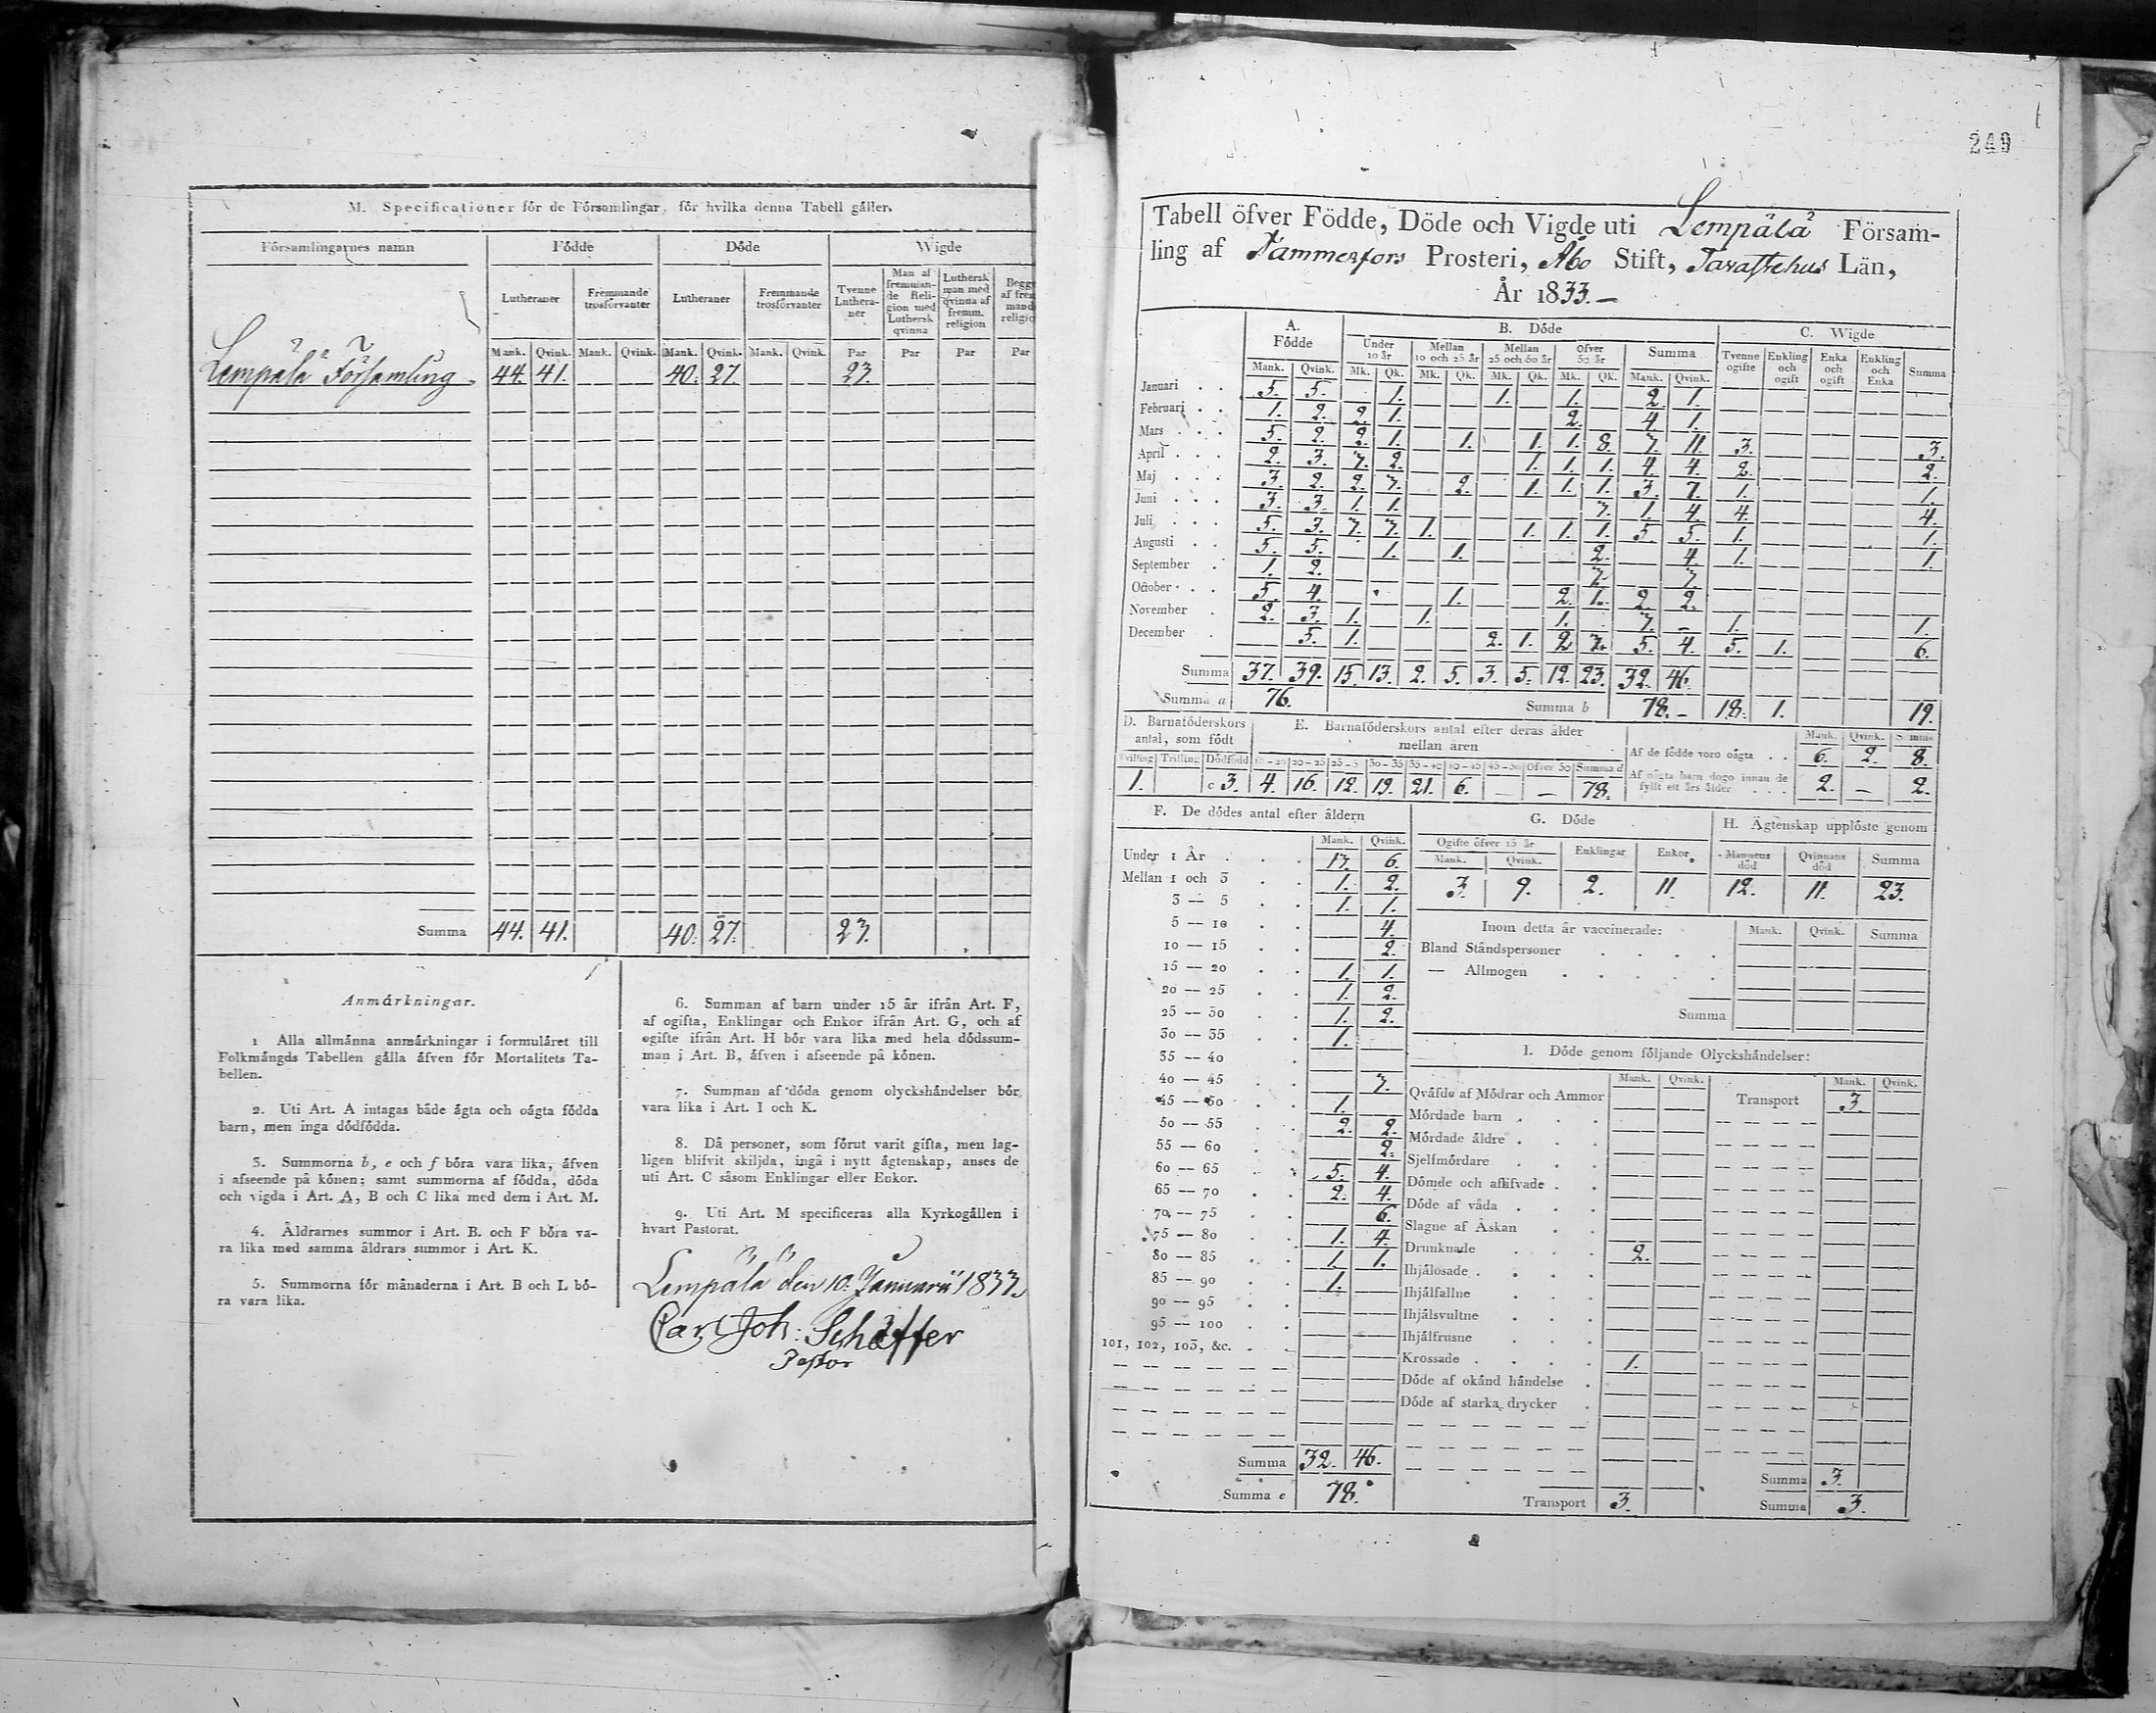 M. Specificationer för de Församlingar, för hvilka denna Tabell gäller.
Församlingarnes namn Födde Döde Wigde
Lutheraner Fremmande trosförvanter Lutheraner Fremmande trosförvanter Tvenne Lutheraner Man af fremmande Religion med Luthersk qvinna Luthersk man med qvinna af fremm. religion
Mank. Qvink. Mank. Qvink. Mank. Qvink. Mank. Qvink. Par Par Par Par
Lempälä Församling. 44. 41. 40. 27. 23.
Summa 44. 41. 40. 27. 23.
Anmärkningar.
1 Alla allmänna anmärkningar i formuläret till
Folkmängds Tabellen gälla äfven för Mortalitets Ta-
bellen.
2. Uti Art. A intagas både ägta och oägta födda
barn, men inga dödfödda.
3. Summorna b, e och f böra vara lika, äfven
i afseende på könen; samt summorna af födda, döda
och vigda i Art. A, B och C lika med dem i Art. M.
4. Åldrarnes summor i Art. B. och F böra va-
ra lika med samma åldrars summor i Art. K.
5. Summorna för månaderna i Art. B och L bö-
ra vara lika.
6. Summan af barn under 15 år ifrån Art. F,
af ogifta, Enklingar och Enkor ifrån Art. G, och af
egifte ifrån Art. H bör vara lika med hela dödssum-
man i Art. B, äfven i afseende på könen.
7. Summan af döda genom olyckshändelser bör
vara lika i Art. I och K.
8. Då personer, som förut varit gifta, men lag-
ligen blifvit skiljda, ingå i nytt ägtenskap, anses de
uti Art. C såsom Enklingar eller Enkor.
9. Uti Art. M specificeras alla Kyrkogällen i
hvart Pastorat.
Lempälä den 10. Januarii 1833.
Carl Joh: Schäffer
Pastor
249
Tabell öfver Födde, Döde och Vigde uti Lempälä Försam-
ling af Tammerfors Prosteri, Åbo Stift, Tavastehus Län,
År 1833.
A. Födde B. Döde C. Wigde
Under 10 år Mellan 10 och 25 år Mellan 25 och 50 år Öfver 50 år Summa Tvenne ogifte Enkling och ogift Enka och ogift Enkling och Enka Summa
Mank. Qvink. Mk. Qk. Mk. Qk. Mk. Qk. Mk. Qk. Mank. Qvink.
Januari 5. 5. 1. 1. 1. 2. 1.
Februari 1. 2. 2. 1. 2. 4. 1.
Mars 5. 2. 2. 1. 1. 1. 1. 8. 3. 11. 3. 3.
April 2. 3. 3. 2. 1. 1. 1. 4. 4. 2. 2.
Maj 3. 2. 2. 3. 2. 1. 1. 1. 3. 7. 1. 1.
Juni 3. 3. 1. 1. 3. 1. 4. 4. 4.
Juli 5. 3. 3. 3. 1. 1. 1. 1. 5. 5. 1. 1.
Augusti 5. 5. 1. 1. 2. 4. 1. 1.
September 1. 2. 3. 3.
October 5. 4. 1. 2. 1. 2. 2.
November 2. 3. 1. 1. 1. 3. 1. 1.
December 5. 1. 2. 1. 2. 3. 5. 4. 5. 1. 6.
Summa 37. 39. 15. 13. 2. 5. 3. 5. 12. 23. 32. 46.
Summa a 76. Summa b 78. 18. 1. 19.
D. Barnaföderskors antal, som födt
Tvilling Trilling Dödfödd
1. c 3.
E. Barnaföderskors antal efter deras ålder mellan åren
20-25 25-3 30-35 35-40 40-45 45-50 öfver 50 Summa d
4. 16. 12. 19. 21. 6. 78.
Mank. Qvink. Summa
Af de födde voro oägta 6. 2. 8.
Af oägta barn dogo innan de fyllt ett års ålder 2. 2.
F. De dödes antal efter åldern
Mank. Qvink.
Under 1 År 13. 6.
Mellan 1 och 3 1. 2.
3 — 5 1. 1.
5 — 10 4.
10 — 15 2.
15 — 20 1. 1.
20 — 25 1. 2.
25 — 30 1. 2.
30 — 35 1.
35 — 40
40 — 45 3.
45 — 50 1.
50 — 55 2. 2.
55 — 60 2.
60 — 65 5. 4.
65 — 70 2. 4.
70 — 75 6.
75 — 80 1. 4.
80 — 85 1. 1.
85 — 90 1.
90 — 95
95 — 100
101, 102, 103, &c.
Summa 32. 46.
Summa e 78.
G. Döde
Ogifte öfver 15 år Enklingar Enkor
Mank. Qvink.
3. 9. 2. 11.
H. Ägtenskap upplöste genom
Mannens död Qvinnans död Summa
12. 11. 23.
Inom detta år vaccinerade: Mank. Qvink. Summa
Bland Ståndspersoner
— Allmogen
Summa
I. Döde genom följande Olyckshändelser:
Mank. Qvink. Mank. Qvink.
Qväfde af Mödrar och Ammor Transport 3.
Mördade barn
Mördade äldre
Sjelfmördare
Dömde och aflifvade
Döde af våda
Slagne af Åskan
Drunknade 2.
Ihjälosade
Ihjälfallne
Ihjälsvultne
Ihjälfrusne
Krossade 1.
Döde af okänd händelse
Döde af starka drycker
Summa 3.
Transport 3. Summa 3.